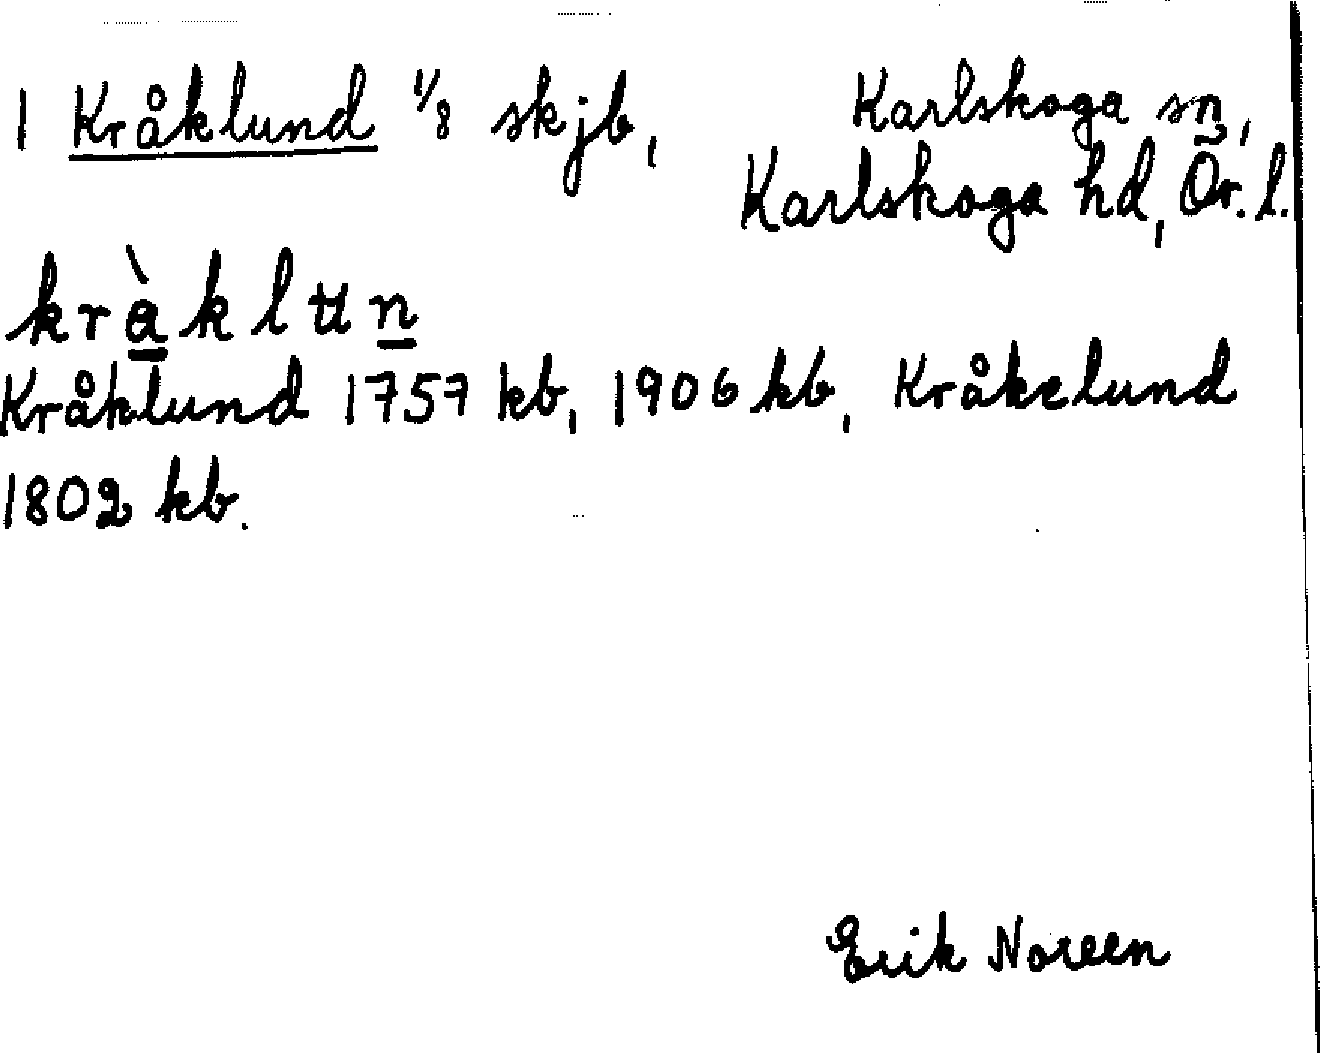 1 Kråklund 1/8 skjb, Karlskoga sn,
Karlskoga hd, Ör. l.
kràklʉn
Kråklund 1757 kb, 1906 kb, Kråkelund
1802 kb.
Erik Noreen